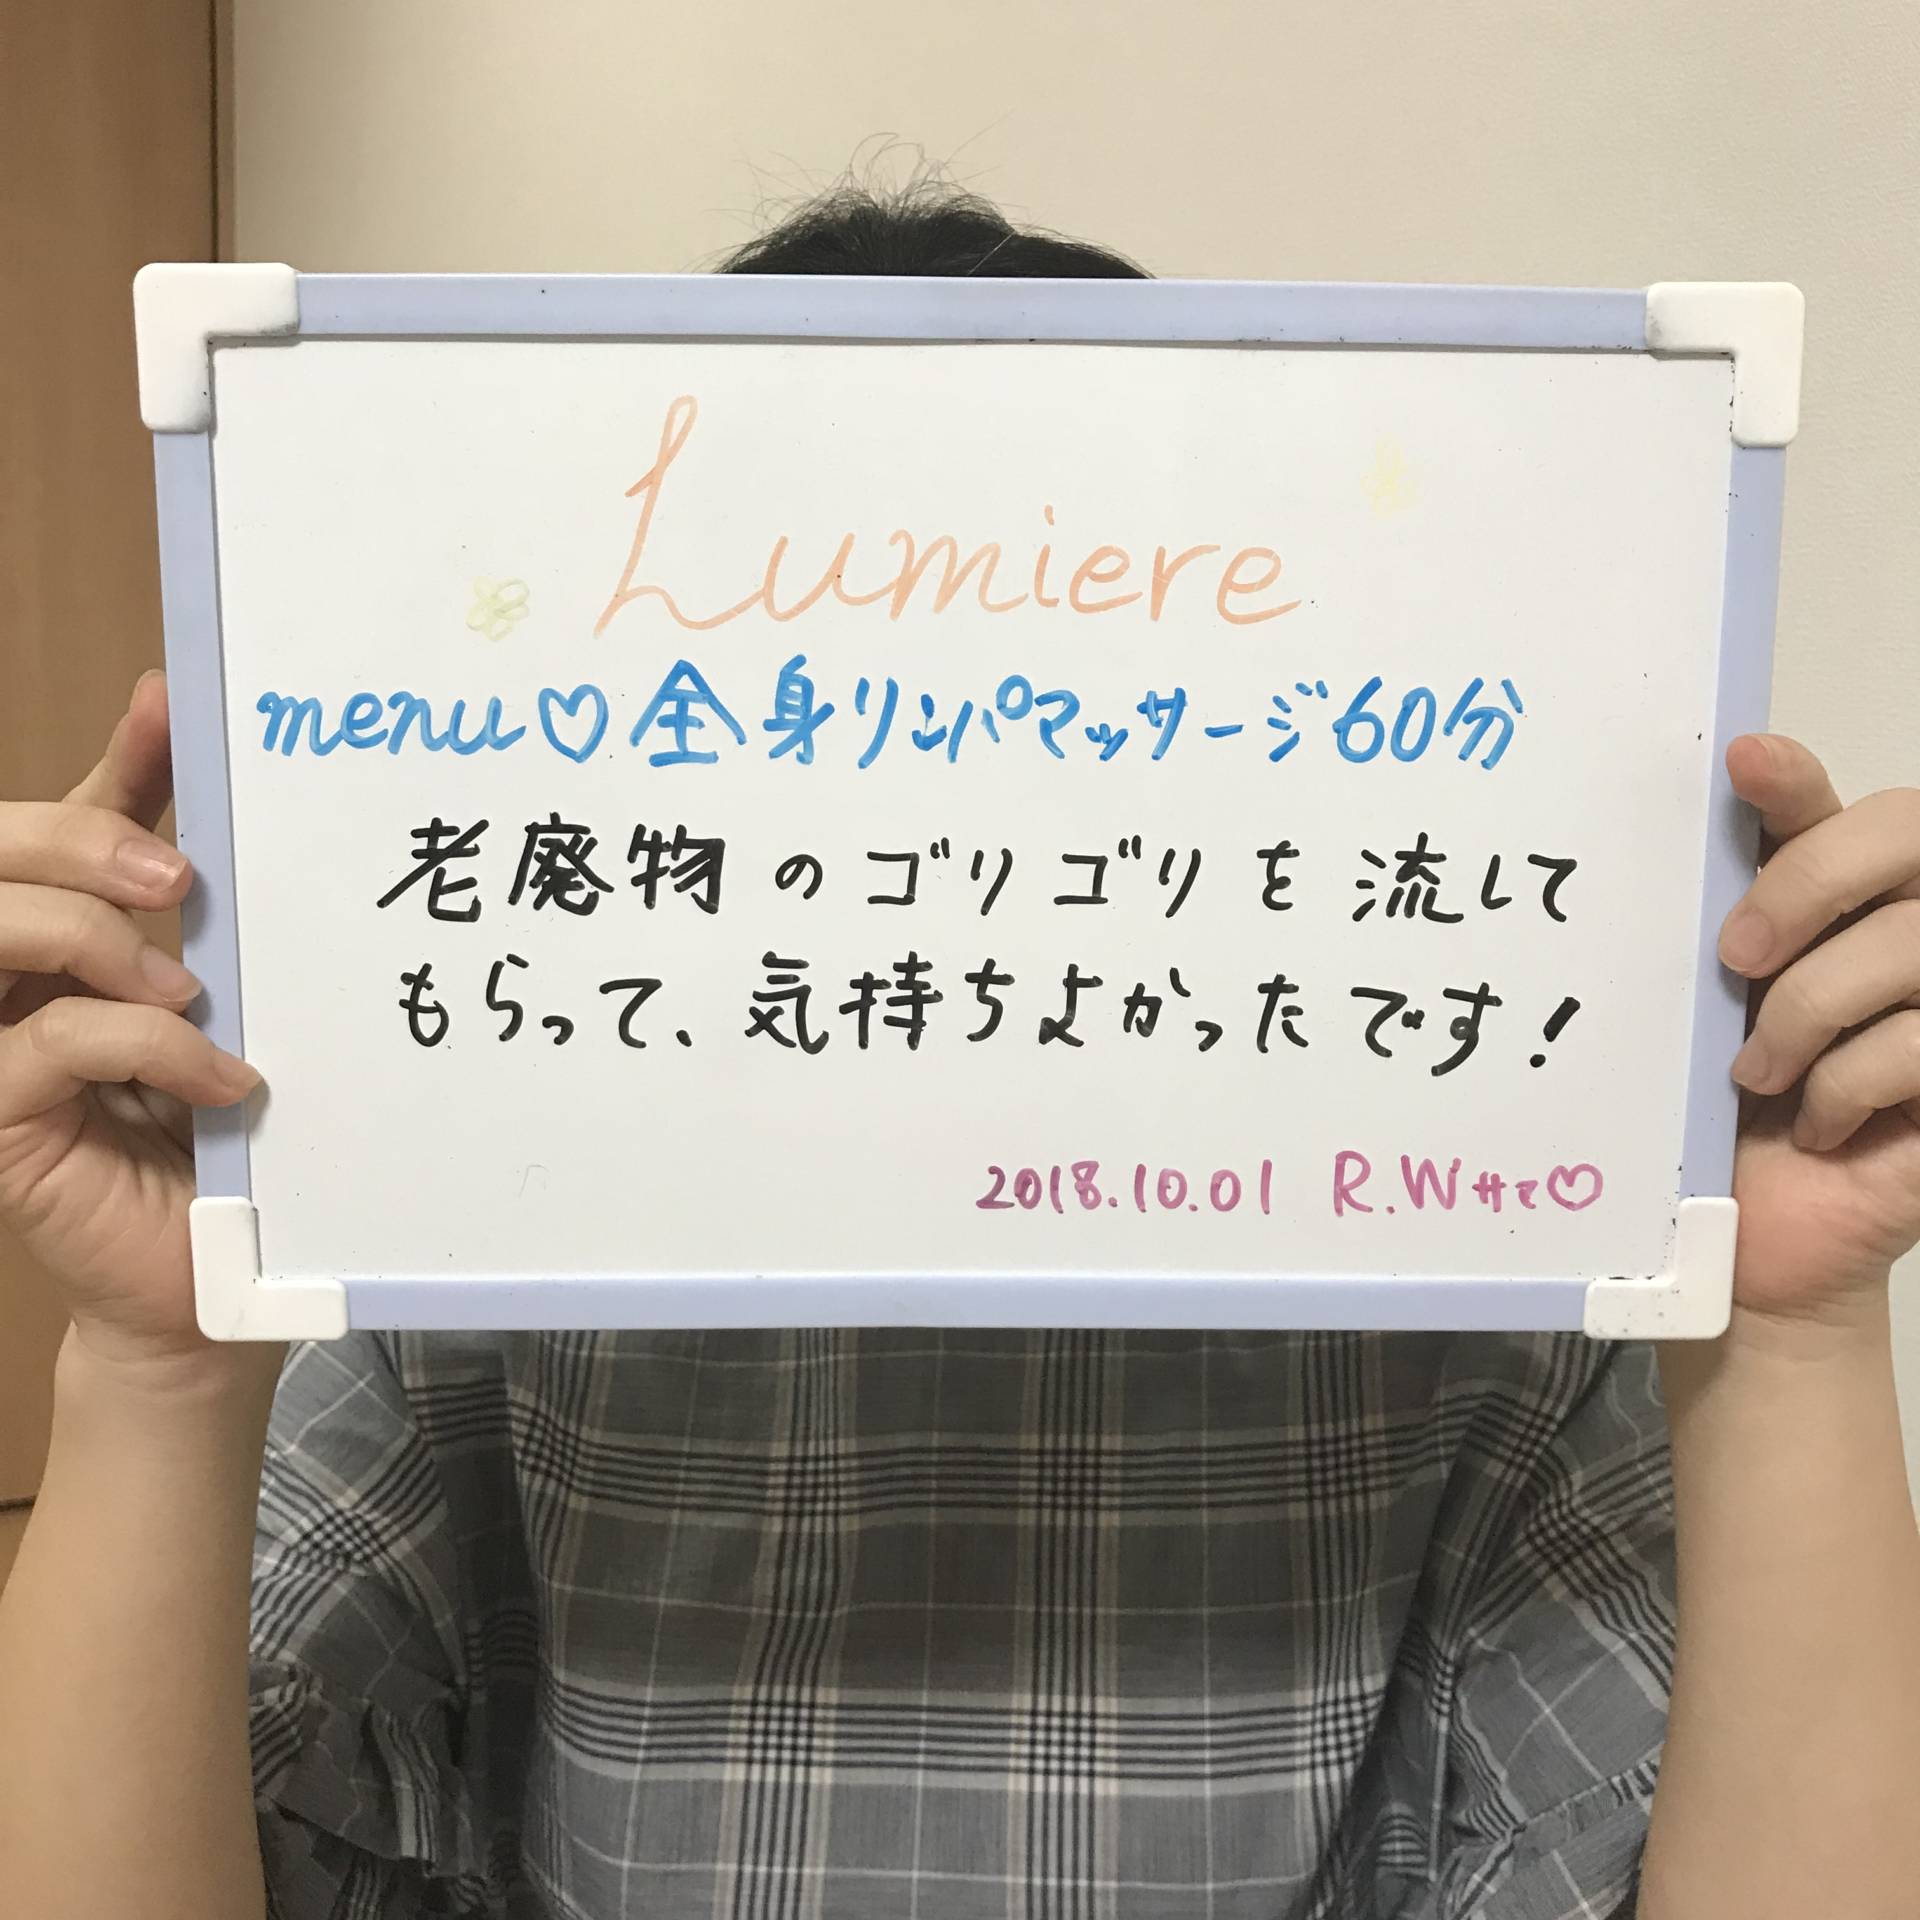 Lumiere
menu♡全身リンパマッサージ60分
老廃物のゴリゴリを流して
もらって、気持ちよかったです!
2018.10.01 R.Wサマ♡